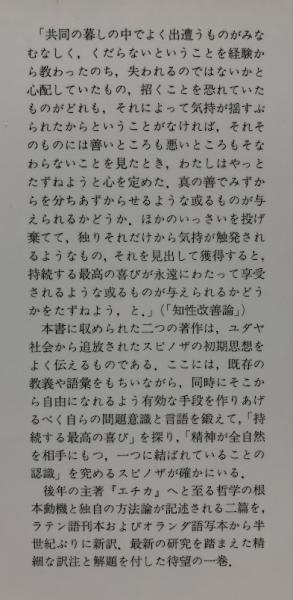 「共同の暮しの中でよく出遭うものがみな
むなしく，くだらないということを経験か
ら教わったのち，失われるのではないかと
心配していたもの，招くことを恐れていた
ものがどれも，それによって気持が揺すぶ
られたからということがなければ，それそ
のものには善いところも悪いところもそな
わらないことを見たとき，わたしはやっと
たずねようと心を定めた．真の善でみずか
らを分ちあずからせるような或るものが与
えられるかどうか．ほかのいっさいを投げ
棄てて，独りそれだけから気持が触発され
るようなもの，それを見出して獲得すると，
持続する最高の喜びが永遠にわたって享受
されるような或るものが与えられるかどう
かをたずねよう，と．」（「知性改善論」）
本書に収められた二つの著作は，ユダヤ
社会から追放されたスピノザの初期思想を
よく伝えるものである．ここには，既存の
教義や語彙をもちいながら，同時にそこか
ら自由になれるよう有効な手段を作りあげ
るべく自らの問題意識と言語を鍛えて，「持
続する最高の喜び」を探り，「精神が全自然
を相手にもつ，一つに結ばれていることの
認識」を究めるスピノザが確かにいる．
後年の主著『エチカ』へと至る哲学の根
本動機と独自の方法論が記述される二篇を，
ラテン語刊本およびオランダ語写本から半
世紀ぶりに新訳．最新の研究を踏まえた精
細な訳注と解題を付した待望の一巻．